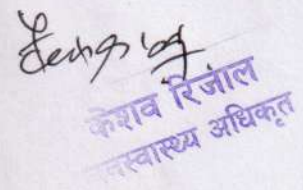 केशव रिजाल
जनस्वास्थ्य अधिकृत